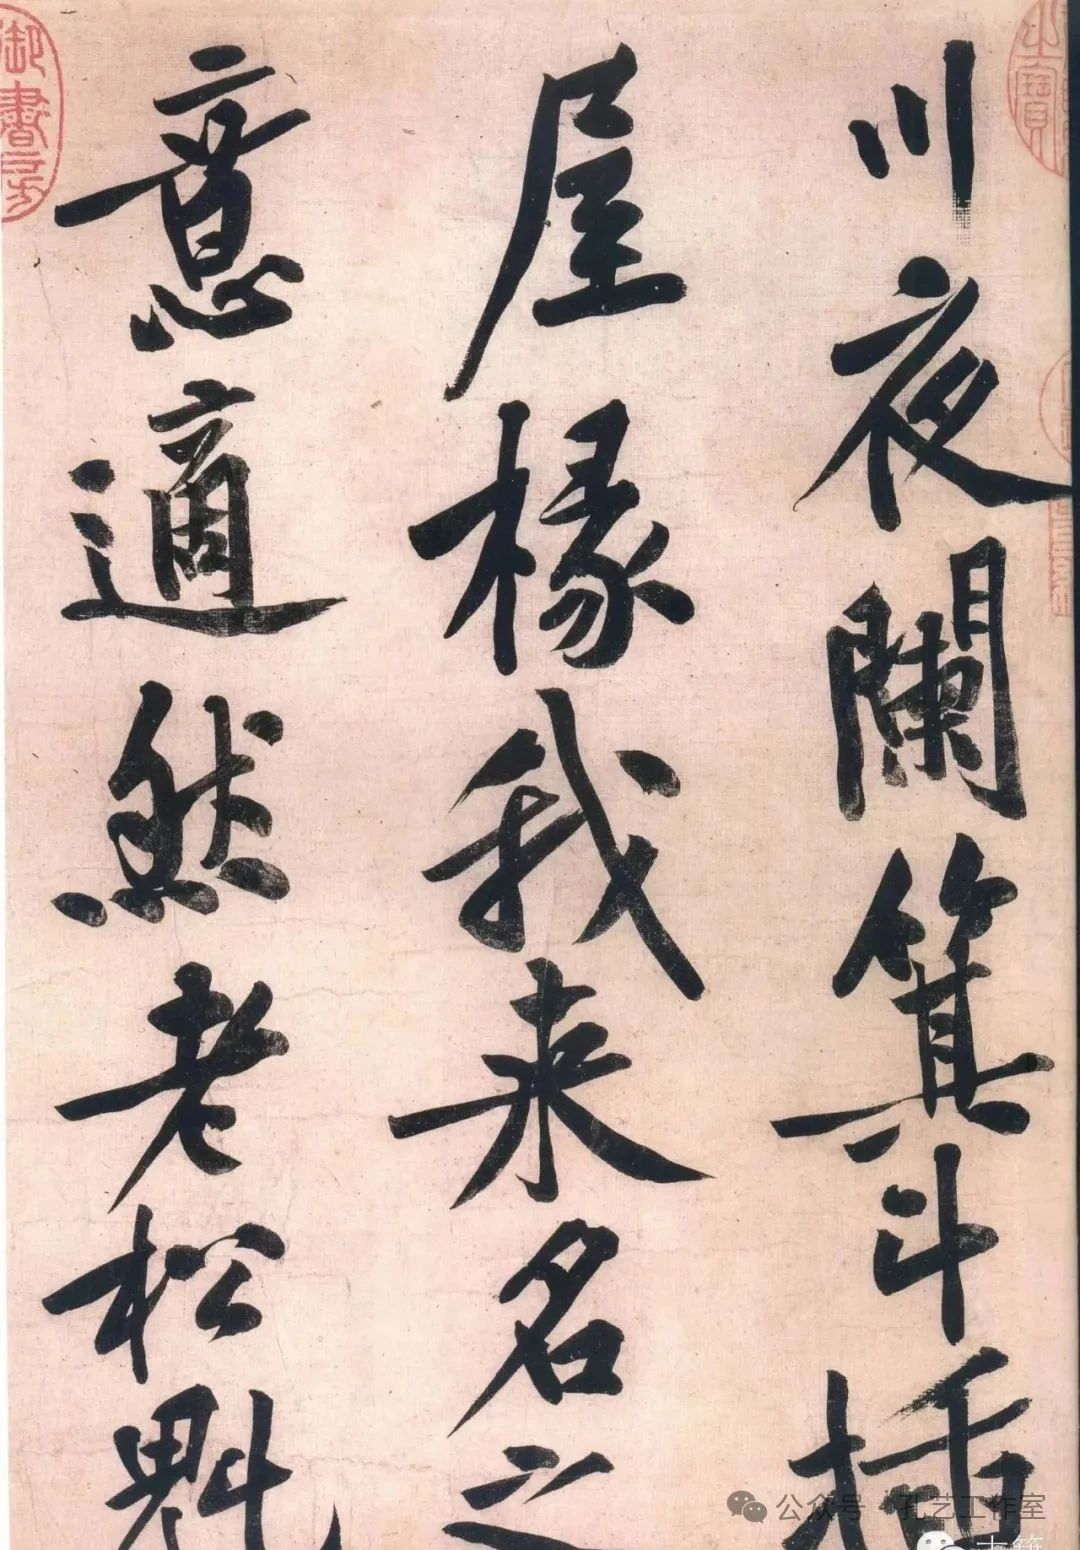 川夜闌箕斗插
屋椽我来名之
意適然老松魁
御書房
之寶
公众号 · 孔艺工作室